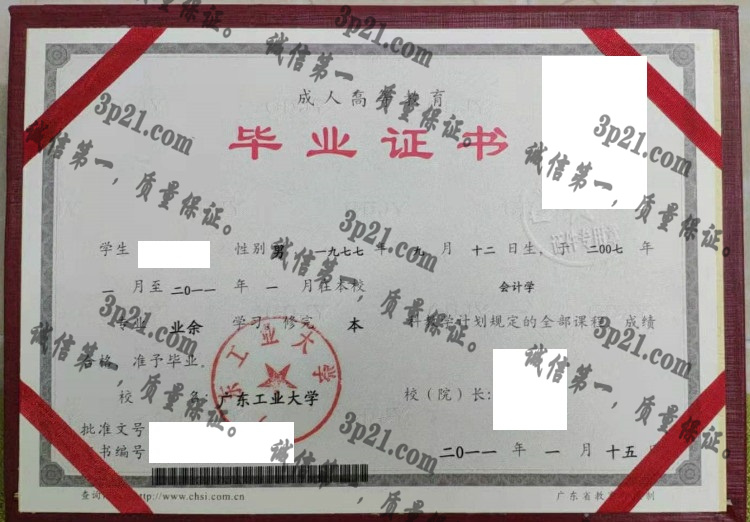 成人高等教育
毕业证书
学生 性别 男 一九七七 年 九 月 十二 日生，于 二00七 年
一 月至 二0一一 年 一 月在本校 会计学
专业 业余 学习 修完 本 科教学计划规定的全部课程，成绩
合格，准予毕业。
校 名：广东工业大学 校（院）长：
批准文号
证书编号 二0一一 年 一 月 十五 日
http://www.chsi.com.cn 广东省教育厅
广东工业大学
3p21.com
诚信第一，质量保证。
3p21.com
诚信第一，质量保证。
3p21.com
诚信第一，质量保证。
3p21.com
诚信第一，质量保证。
3p21.com
诚信第一，质量保证。
3p21.com
诚信第一，质量保证。
3p21.com
诚信第一，质量保证。
3p21.com